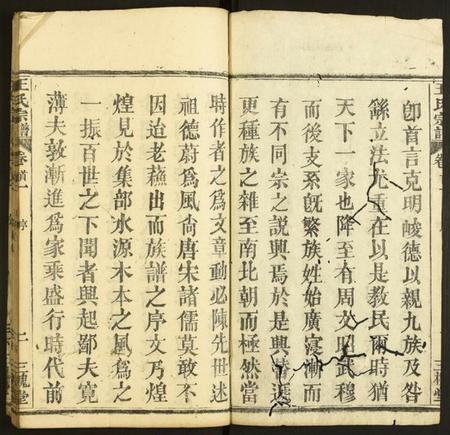 王氏宗譜
卽首言克明峻德以親九族及咎
繇立法尤重在以是教民爾時猶
天下一家也降至有周文昭武穆
而後支系旣繁族姓始廣寖漸而
有不同宗之說興焉於是興替迭
更種族之雜至南北朝而極然當
時作者之為文章動必陳先世述
祖德蔚爲風尙唐宋諸儒莫敢不
因迨老蘓出而族譜之序文乃煌
煌見於集部水源木本之風爲之
一振百世之下聞者興起鄙夫寬
薄夫敦漸進爲家乘盛行時代前
王氏宗譜 卷首一 序 一 三槐堂